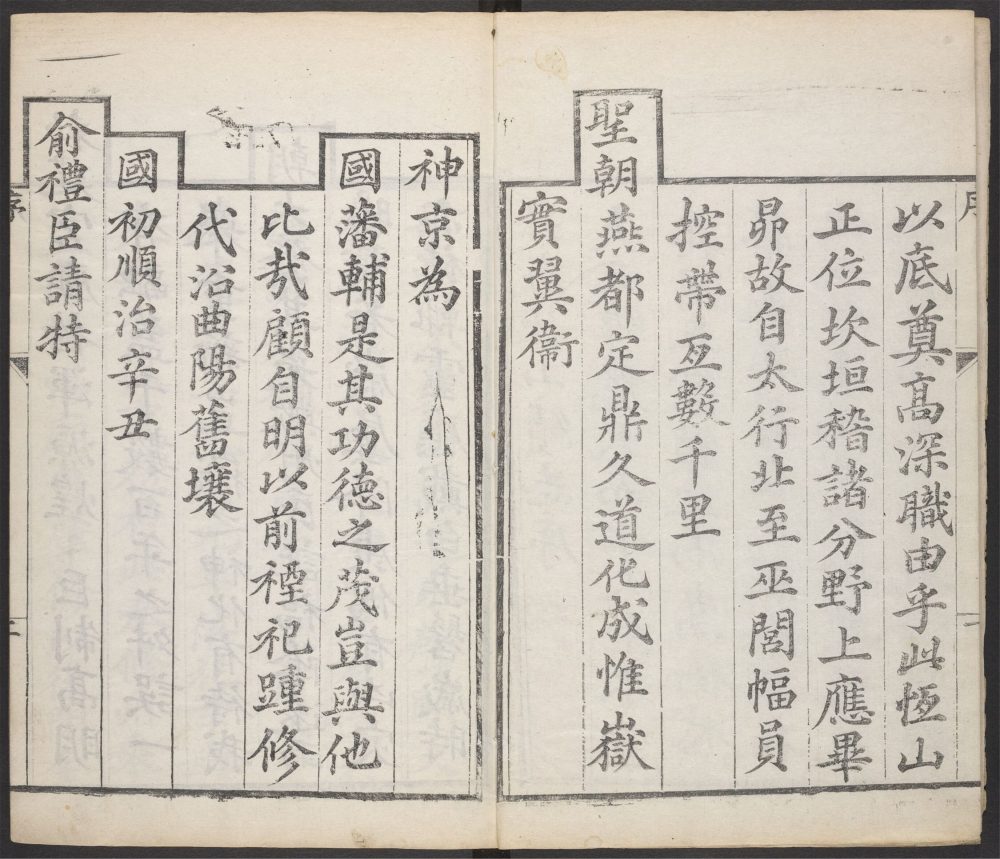 以底奠高深職由乎此恆山
正位坎垣稽諸分野上應畢
昴故自太行北至巫閭幅員
控帶亙數千里
聖朝燕都定鼎久道化成惟嶽
實翼衞
神京為
國藩輔是其功德之茂豈與他
比哉顧自明以前禋祀踵修
代沿曲陽舊壤
國初順治辛丑
俞禮臣請特